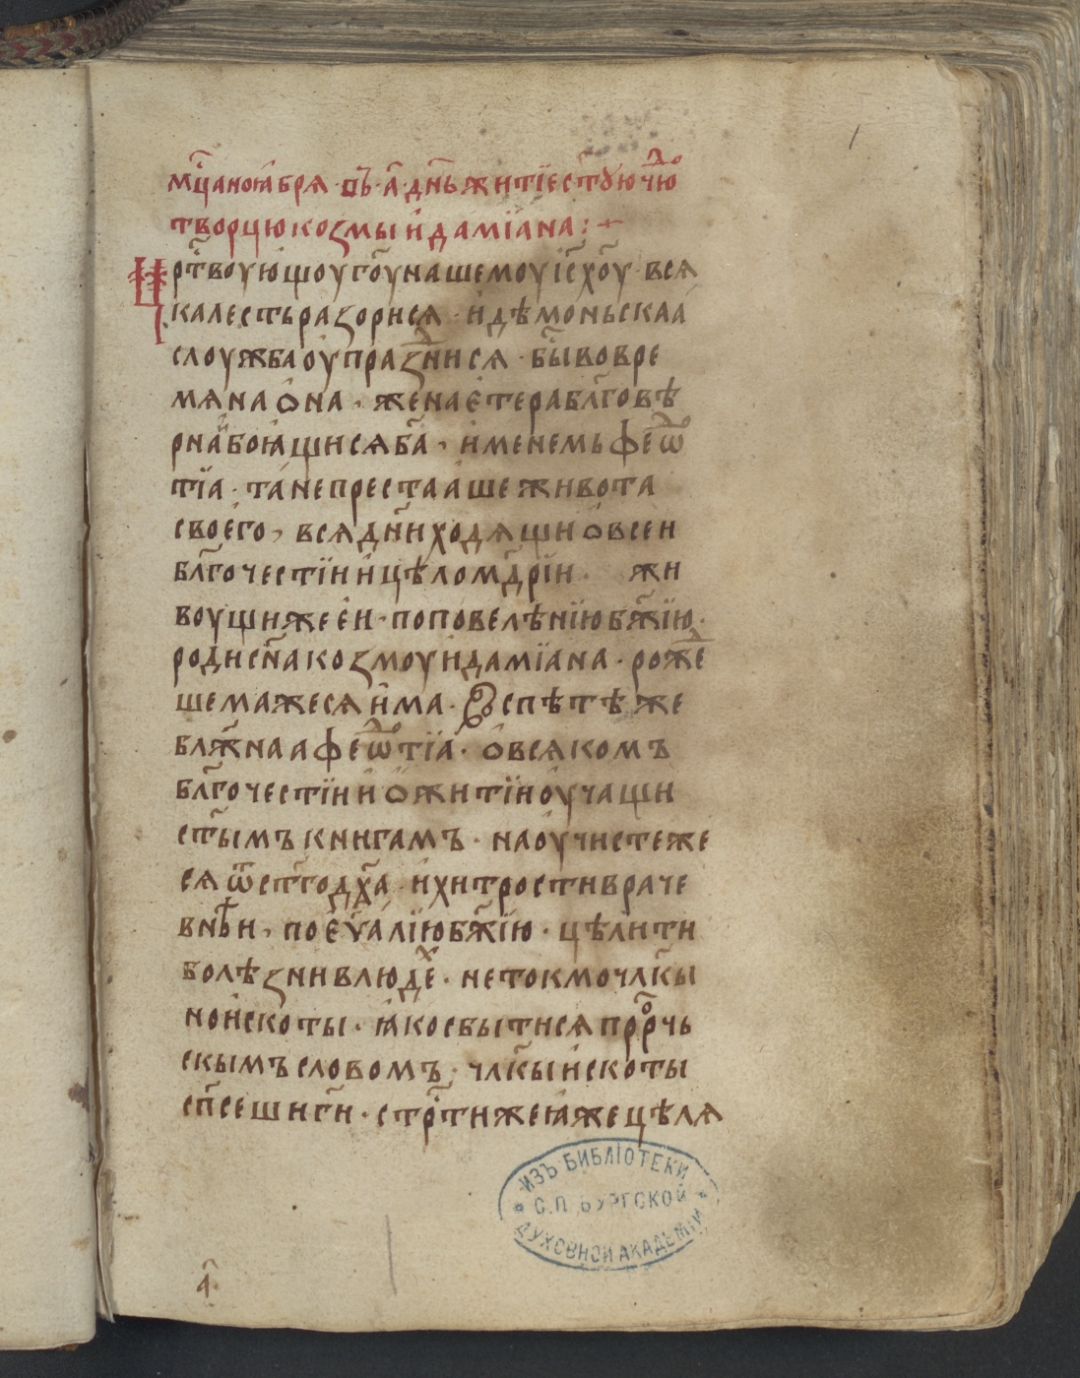 /
мц҃а ноꙗбря · въ · а҃ · дн҃ь житїе ст҃ую чюⷣⷪ
творцю козмы и҆ дамїана :~
Црⷭ҇твоующоу го҃у нашемоу іс҃ хо҃у · вся
ка лесть разорися · и҆ дѣмоньскаа
слоужба оу҆празⷣнися · бы҃ в овре
мяна ѻ҆на · жена є҆тера бл҃говѣ
рна и҆ боꙗщися ба҃ , и҆менемь феѡ
тїа · та не престааше живота
своего , вся дн҃и ходящи ѻ҆ всеи
бл҃гочестїи и҆ цѣломⷣрїи · жи
воущи же еи · по повелѣнїю бж҃їю ·
роди сн҃а козмоу и҆ дамїана · рожеⷣ
шема же ся и҆ма · Ѿспѣтѣ же
блж҃наа феѡтїа · ѻ҆ всякомъ
бл҃гочестїи и҆ ѻ҆ житїи оу҆чащи
ст҃ымъ книгамъ · наоучисте же
ся ѿ ст҃го дх҃а · и҆ хитрости враче
внѣи , по єѵа҃лїю бж҃їю · цѣлити
болѣзни в людеⷯ · не токмо чл҃кы
но и҆ скоты · ꙗко сбытися прⷪ҇рчь
скымъ словомъ · чл҃кы и҆ скоты
сп҃сеши ги҃ · стрⷭ҇ти же ꙗже цѣля
ИЗЪ БИБЛІОТЕКИ
С.П.БУРГСКОЙ
ДУХОВНОЙ АКАДЕМІИ
а҃